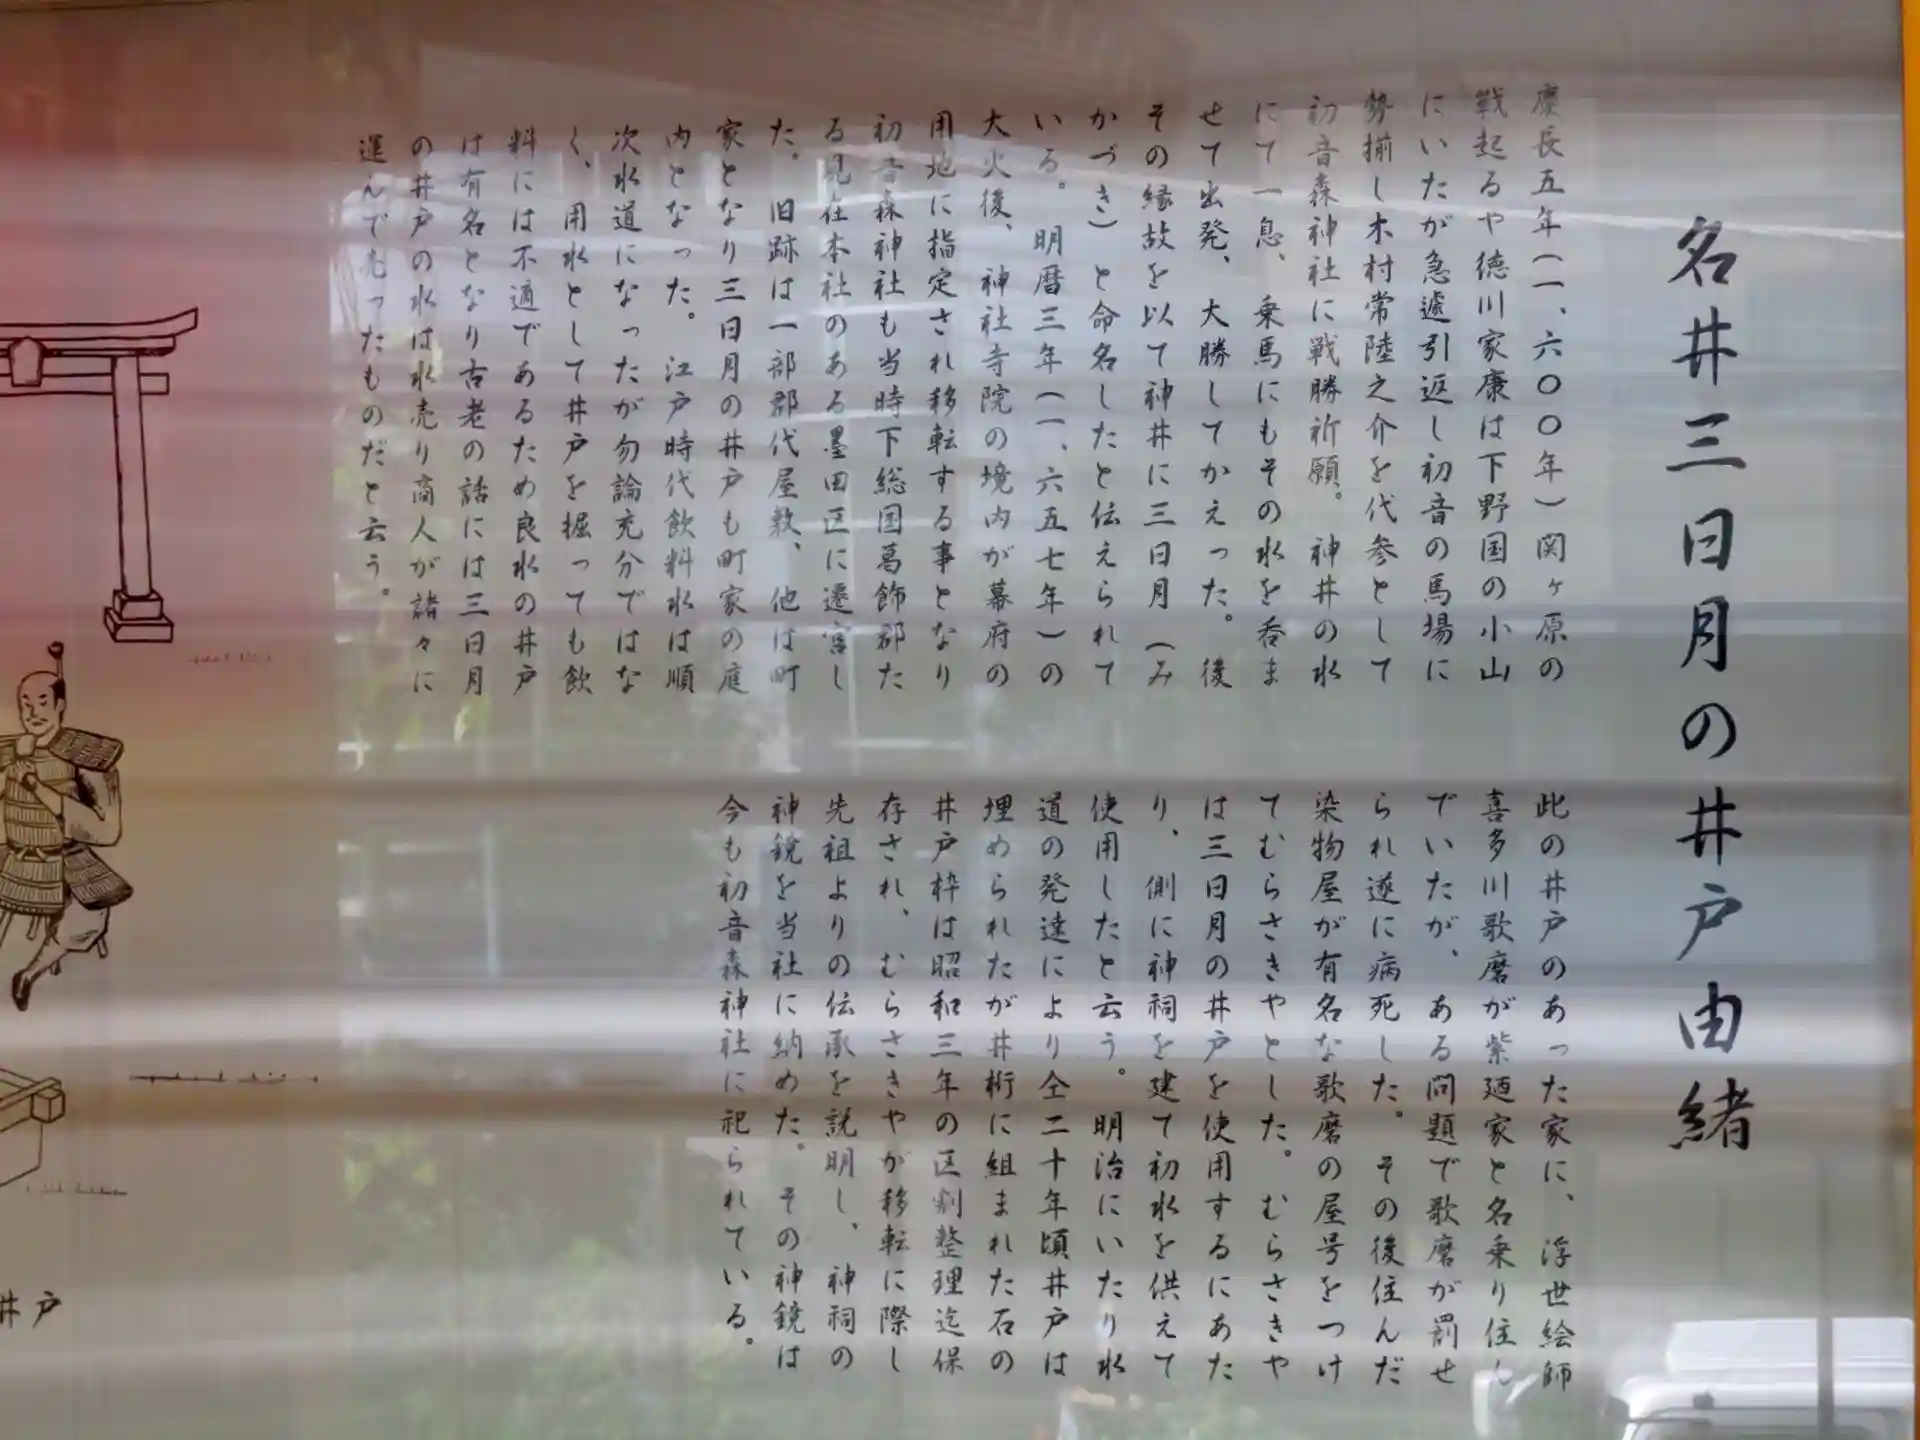 名井三日月の井戸由緒
慶長五年(一、六〇〇年)関ヶ原の
戦起るや徳川家康は下野国の小山
にいたが急遽引返し初音の馬場に
勢揃し木村常陸之介を代参として
初音森神社に戦勝祈願。神井の水
にて一息、乗馬にもその水を呑ま
せて出発、大勝してかえった。後
その縁故を以て神井に三日月(み
かづき)と命名したと伝えられて
いる。明暦三年(一、六五七年)の
大火後、神社寺院の境内が幕府の
用地に指定され移転する事となり
初音森神社も当時下総国葛飾郡た
る見在本社のある墨田区に遷宮し
た。旧跡は一部郡代屋敷、他は町
家となり三日月の井戸も町家の庭
内となった。江戸時代飲料水は順
次水道になったが勿論充分ではな
く、用水として井戸を掘っても飲
料には不適であるため良水の井戸
は有名となり古老の話には三日月
の井戸の水は水売り商人が諸々に
運んで売ったものだと云う。
此の井戸のあった家に、浮世絵師
喜多川歌磨が紫廼家と名乗り住ん
でいたが、ある問題で歌磨が罰せ
られ遂に病死した。その後住んだ
染物屋が有名な歌磨の屋号をつけ
てむらさきやとした。むらさきや
は三日月の井戸を使用するにあた
り、側に神祠を建て初水を供えて
使用したと云う。明治にいたり水
道の発達により仝二十年頃井戸は
埋められたが井桁に組まれた石の
井戸枠は昭和三年の区割整理迄保
存され、むらさきやが移転に際し
先祖よりの伝承を説明し、神祠の
神鏡を当社に納めた。その神鏡は
今も初音森神社に祀られている。
井戸